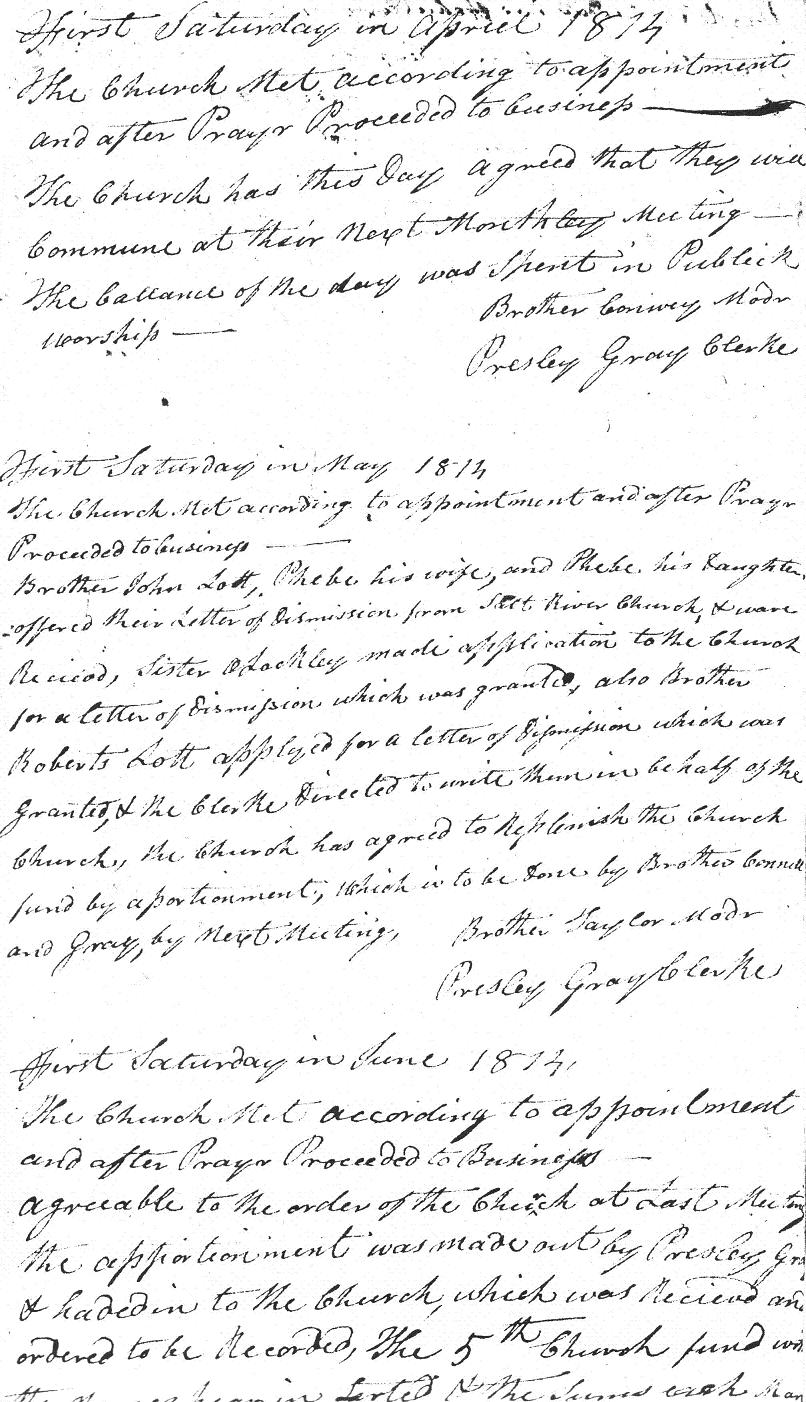 First Saturday in Apriel 1814
The Church Met according to appointment
and after Prayr Proceeded to business
The Church has this Day agreed that they will
Commune at their Next Monthley Meeting
The ballance of the day was Spent in Publick
worship
Brother Conwey Modr
Presley Gray Clerke
First Saturday in May 1814
The Church Met according to appointment and after Prayr
Proceeded to business
Brother John Lott, Phebe his wife, and Phebe his Daughter
offered their Letter of Dismission from Salt River Church, & ware
Recieod, Sister made application to the Church
for a letter of Dismission which was granted, also Brother
Roberts Lott applyed for a letter of Dismission which was
Granted, & the Clerke Directed to write them in behalf of the
Church, the Church has agreed to Replenish the Church
fund by aportionment, which is to be Done by Brother
and Gray, by Next Meeting,
Brother Taylor Modr
Presley Gray Clerke
First Saturday in June 1814,
The Church Met according to appointment
and after Prayr Proceeded to Business
agreeable to the order of the Church at Last Meeting
the apportionment was made out by Presley Gra
& haded in to the Church, which was Recievd and
ordered to be Recorded, The 5th Church fund
the in Serted & the Sums each Man